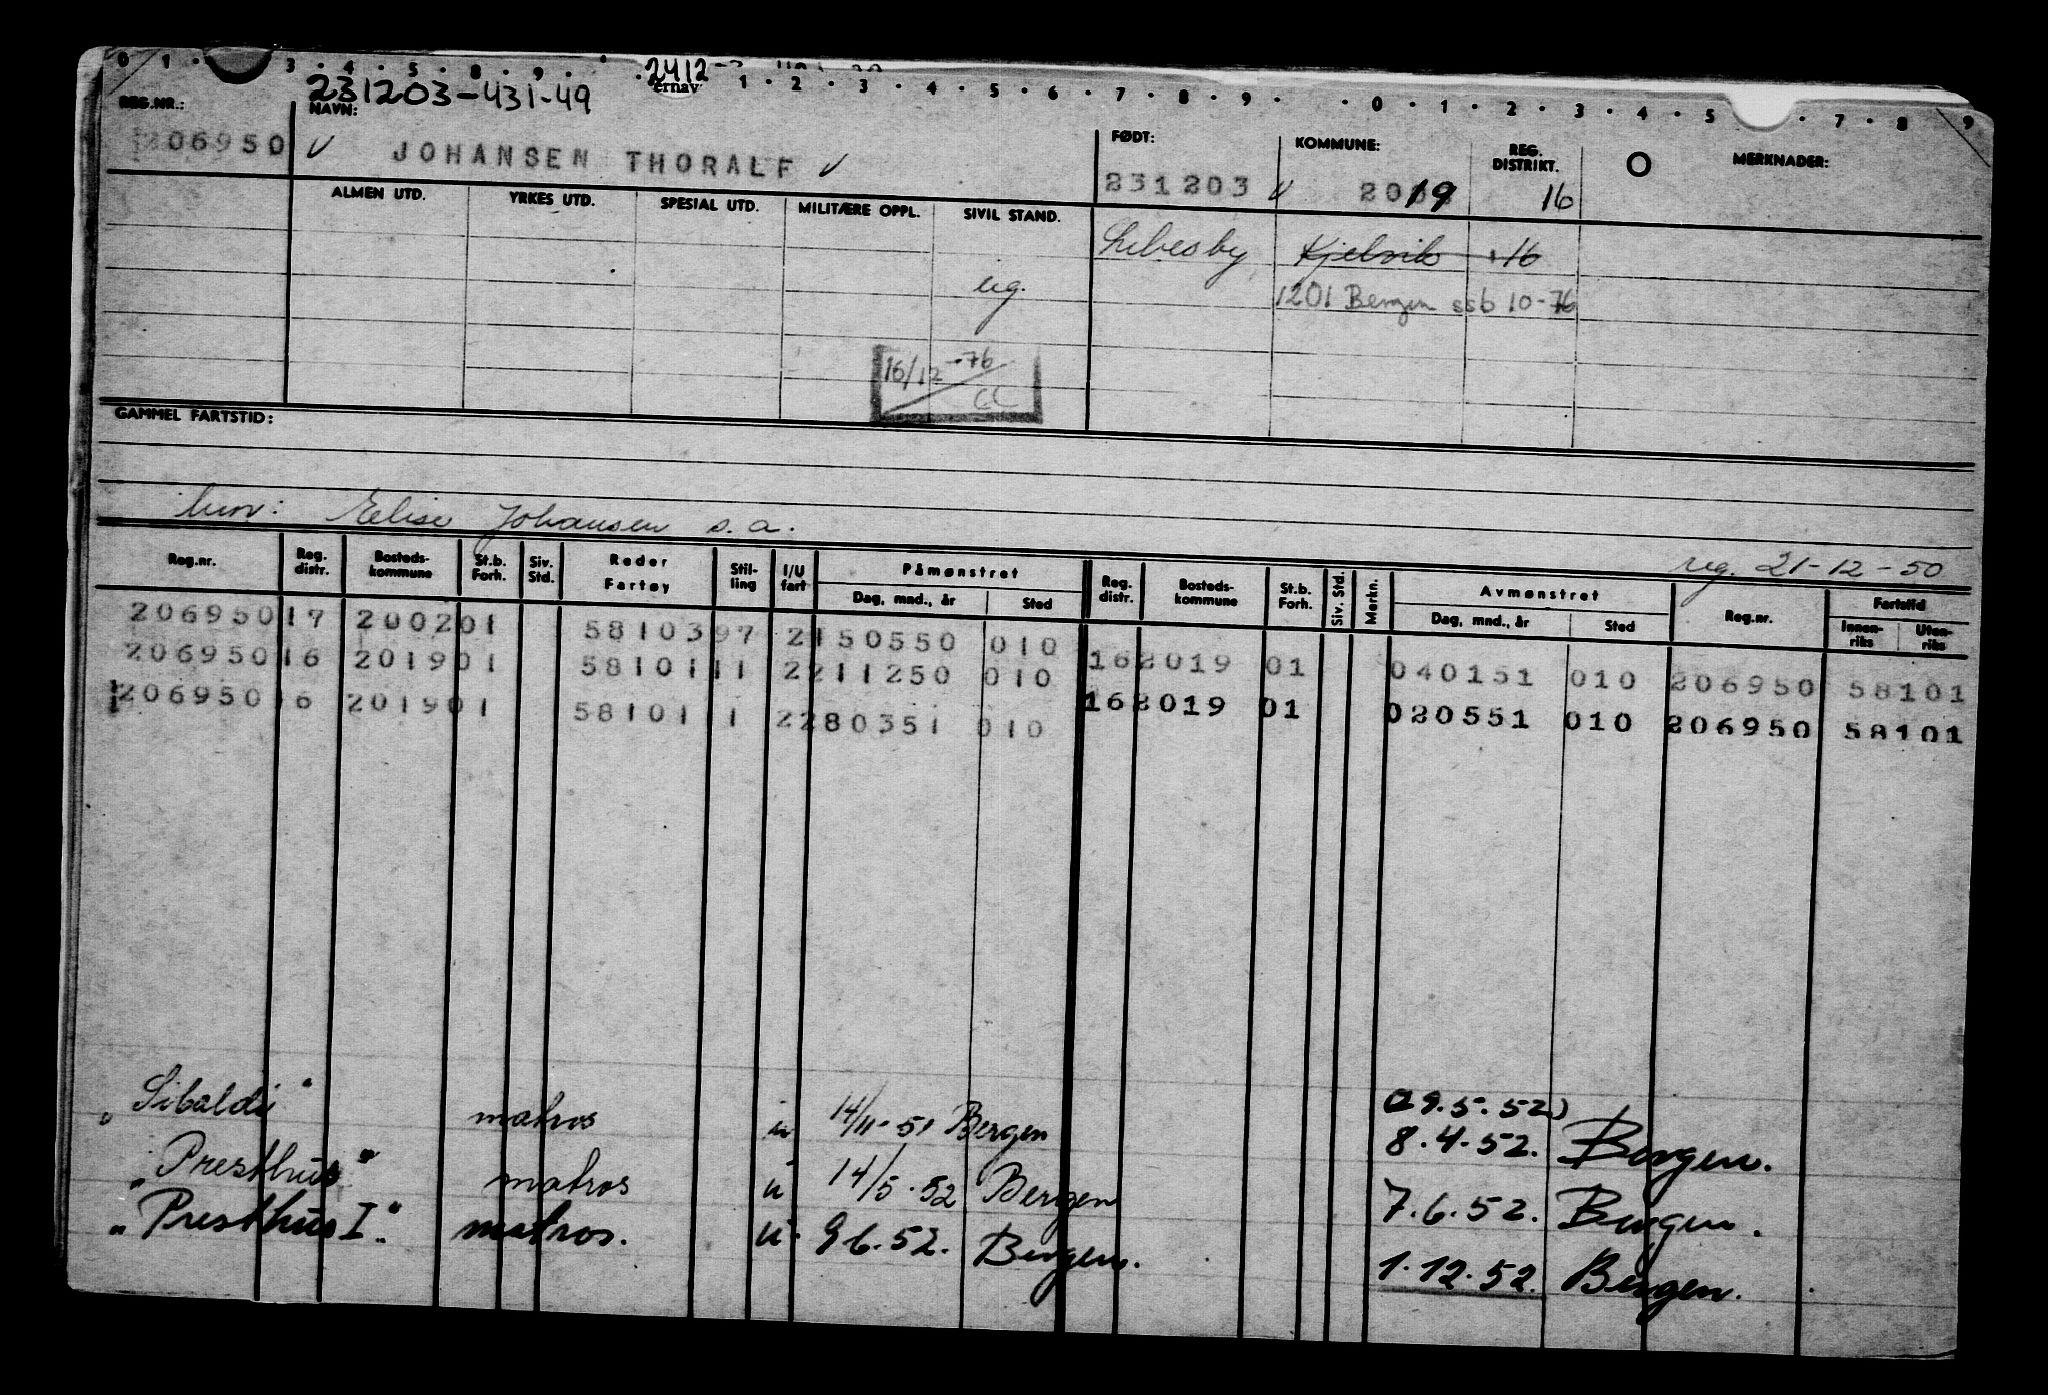 0 1 · 3 · 4 · 5 · 8 · 9 · 2412 1 · 2 · 3 · 4 · 5 · 6 · 7 · 8 · 9 · · 0 · 1 · 2 · 3 · 4 · 5 · 7 · 8 9
231203-431-49 ernav
REG.NR.: NAVN: FØDT: KOMMUNE: REG. DISTRIKT. O MERKNADER:
206950 √ JOHANSEN THORALF √ 231203 √ 2019 16
ALMEN UTD. YRKES UTD. SPESIAL UTD. MILITÆRE OPPL. SIVIL STAND.
Lebesby Kjelvik 16
ug. 1201 Bergen ssb 10-76
16/12 -76
CC
GAMMEL FARTSTID:
mor: Elise Johansen s.a.
reg. 21-12-50
Reg.nr. Reg. distr. Bosteds-kommune St.b. Forh. Siv. Std. Reder Fartøy Stil-ling I/U fart Påmønstret Dag, mnd., år Sted Reg. distr. Bosteds-kommune St.b. Forh. Siv. Std. Merkn. Avmønstret Dag, mnd., år Sted Reg.nr. Fartstid Innen-riks Uten-riks
206950 17 2002 01 58103 97 2 150550 010
206950 16 2019 01 58101 11 2 211250 010 16 2019 01 040151 010 206950 58101
206950 16 2019 01 58101 11 2 280351 010 16 2019 01 020551 010 206950 58101
(29.5.52)
"Sibaldi" matros u 14/11-51 Bergen 8.4.52. Bergen.
"Presthus" matros u 14/5.52 Bergen 7.6.52. Bergen.
"Presthus I". matros. u. 9 6.52. Bergen. 1.12.52. Bergen.